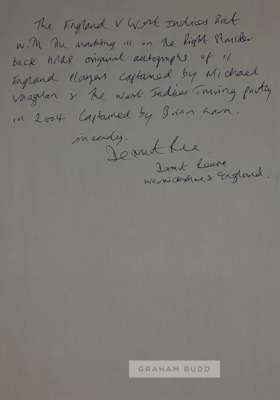 The England V West Indies Bat
with the marking III on the Right Shoulder
back holds original autographs of 11
England Players Captained by Michael
Vaughan & the West Indies Touring party
in 2004 Captained by Brian Lara.
sincerely
Dermot Reeve
Dermot Reeve
Warwickshire & England.
GRAHAM BUDD